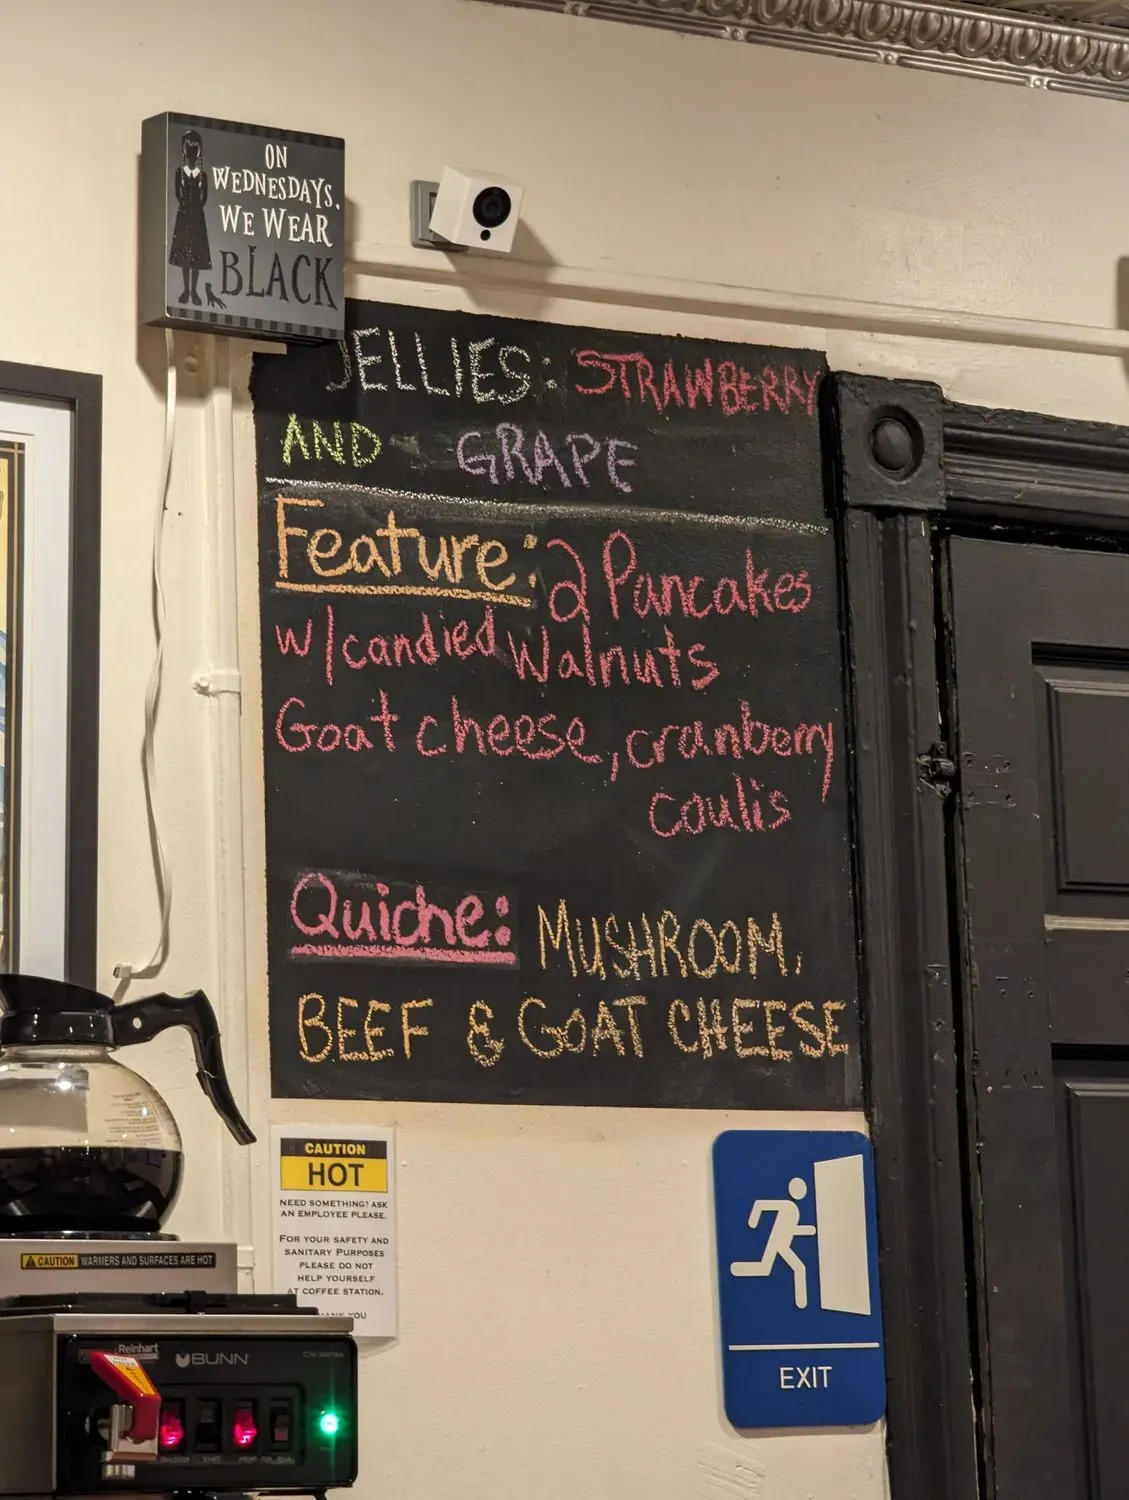 ON
WEDNESDAYS,
WE WEAR
BLACK
JELLIES: STRAWBERRY
AND GRAPE
Feature: 2 Pancakes
w/candied Walnuts
Goat cheese, cranberry
coulis
Quiche: MUSHROOM,
BEEF & GOAT CHEESE
CAUTION
HOT
NEED SOMETHING? ASK
AN EMPLOYEE PLEASE.
FOR YOUR SAFETY AND
SANITARY PURPOSES
PLEASE DO NOT
HELP YOURSELF
AT COFFEE STATION.
YOU
CAUTION WARMERS AND SURFACES ARE HOT
Reinhart
BUNN
EXIT